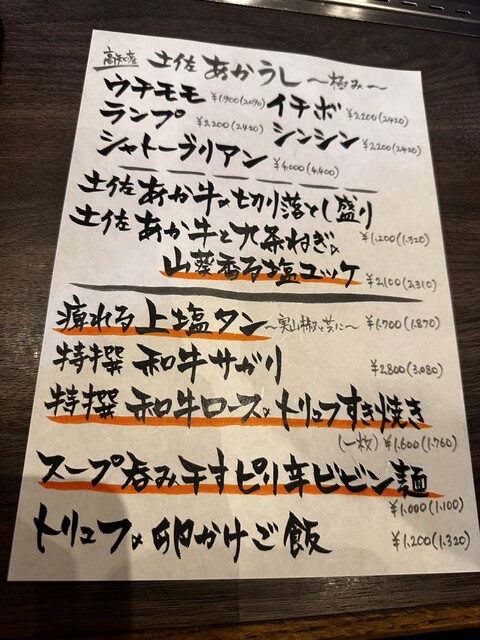 高知産 土佐あかうし〜極み〜
ウチモモ ¥1,900(2,090) イチボ ¥2,200(2,420)
ランプ ¥2,200(2,420) シンシン ¥2,200(2,420)
シャトーブリアン ¥4,000(4,400)
土佐あか牛の切り落とし盛り
¥1,200(1,320)
土佐あか牛と九条ねぎの
山葵香る塩ユッケ ¥2,100(2,310)
痺れる上塩タン〜実山椒と共に〜 ¥1,700(1,870)
特撰 和牛サガリ ¥2,800(3,080)
特撰 和牛ロースのトリュフすき焼き
(一枚) ¥1,600(1,760)
スープ呑み干すピリ辛ビビン麺
¥1,000(1,100)
トリュフの卵かけご飯 ¥1,200(1,320)